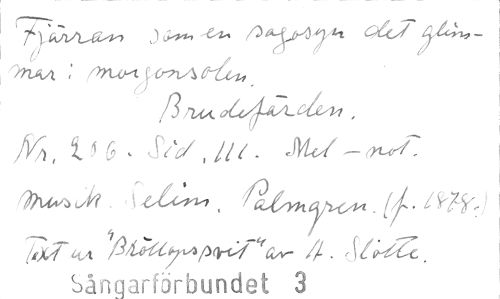 Fjärran som en sagosyn det glim-
mar i morgonsolen.
Brudefärden.
Nr. 206. Sid. 111. Mel-not.
musik. Selim. Palmgren. (f. 1878.)
Text ur "Bröllopssvit" av H. Slotte.
Sångarförbundet 3